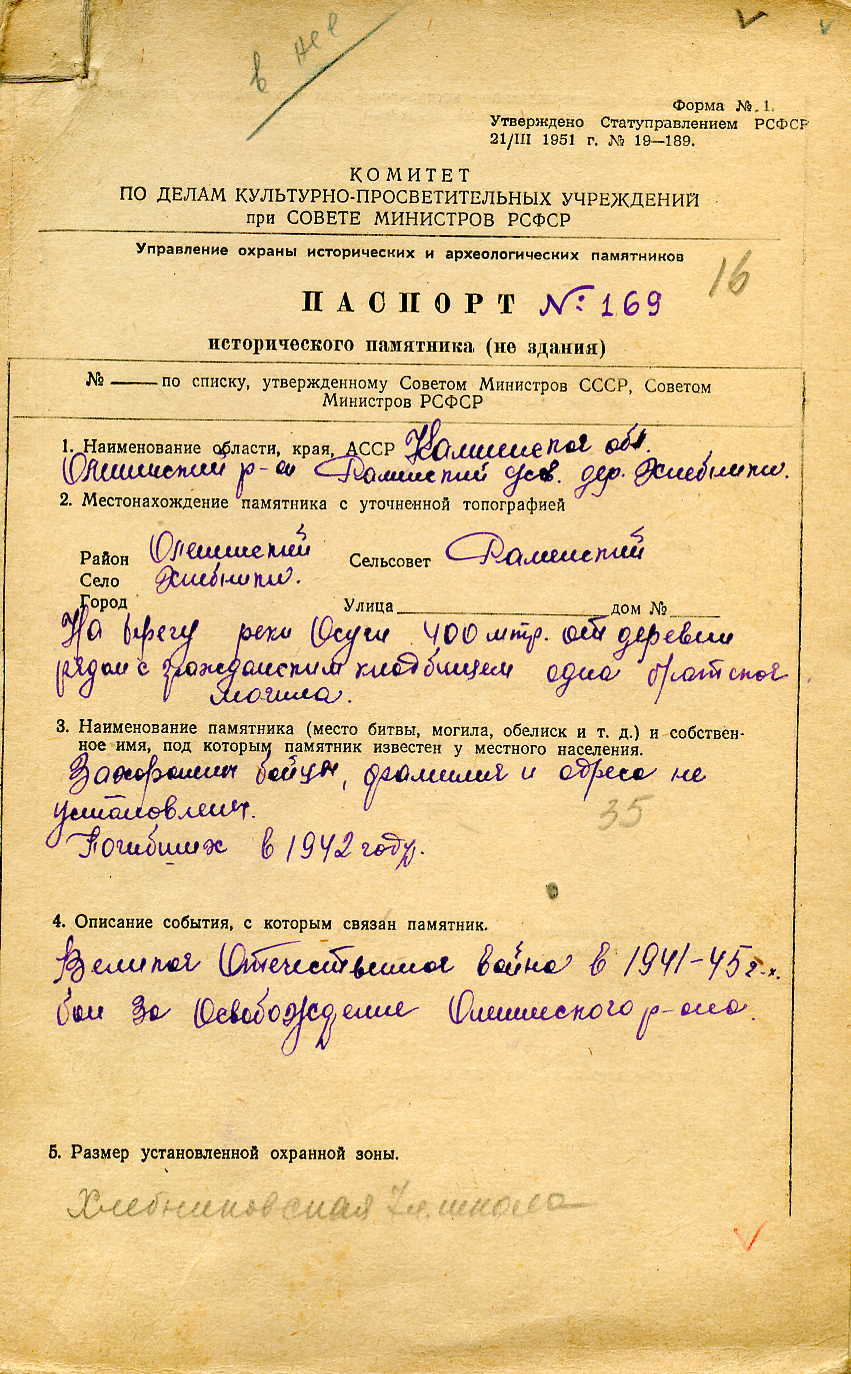 в нее
Форма № 1.
Утверждено Статуправлением РСФСР
21/III 1951 г. № 19—189.
КОМИТЕТ
ПО ДЕЛАМ КУЛЬТУРНО-ПРОСВЕТИТЕЛЬНЫХ УЧРЕЖДЕНИЙ
при СОВЕТЕ МИНИСТРОВ РСФСР
Управление охраны исторических и археологических памятников
16
ПАСПОРТ № 169
исторического памятника (не здания)
№ —— по списку, утвержденному Советом Министров СССР, Советом
Министров РСФСР
1. Наименование области, края, АССР Калининская обл.
Оленинский р-он Раминский дер. Хлебники.
2. Местонахождение памятника с уточненной топографией
Район Оленинский Сельсовет Раминский
Село Хлебники.
Город Улица дом №
На берегу реки Осуги 400 мтр. от деревни
рядом с гражданским кладбищем одна братская
могила.
3. Наименование памятника (место битвы, могила, обелиск и т. д.) и собствен-
ное имя, под которым памятник известен у местного населения.
Захоронен бойцы, фамилия и адреса не
установлены.
35
Погибших в 1942 году.
4. Описание события, с которым связан памятник.
Великая Отечественная война в 1941-45 г.х.
бои за Освобождение Оленинского р-она.
5. Размер установленной охранной зоны.
Хлебниковская 7 л. школа